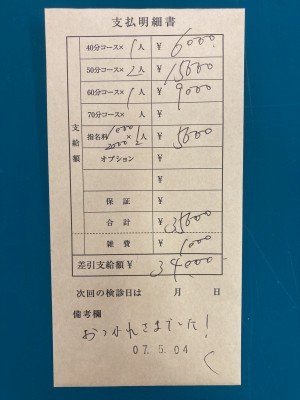 支払明細書
40分コース× 1人 ¥ 6000
50分コース× 2人 ¥ 15000
60分コース× 1人 ¥ 9000
70分コース× 人 ¥
支給額
指名料 1000 × 1人 2000 2 ¥ 5000
オプション ¥
¥
保証 ¥
合計 ¥ 35000
雑費 ¥ 1000
差引支給額¥ 34000
次回の検診日は 月 日
備考欄
おつかれさまでした!
07.5.04